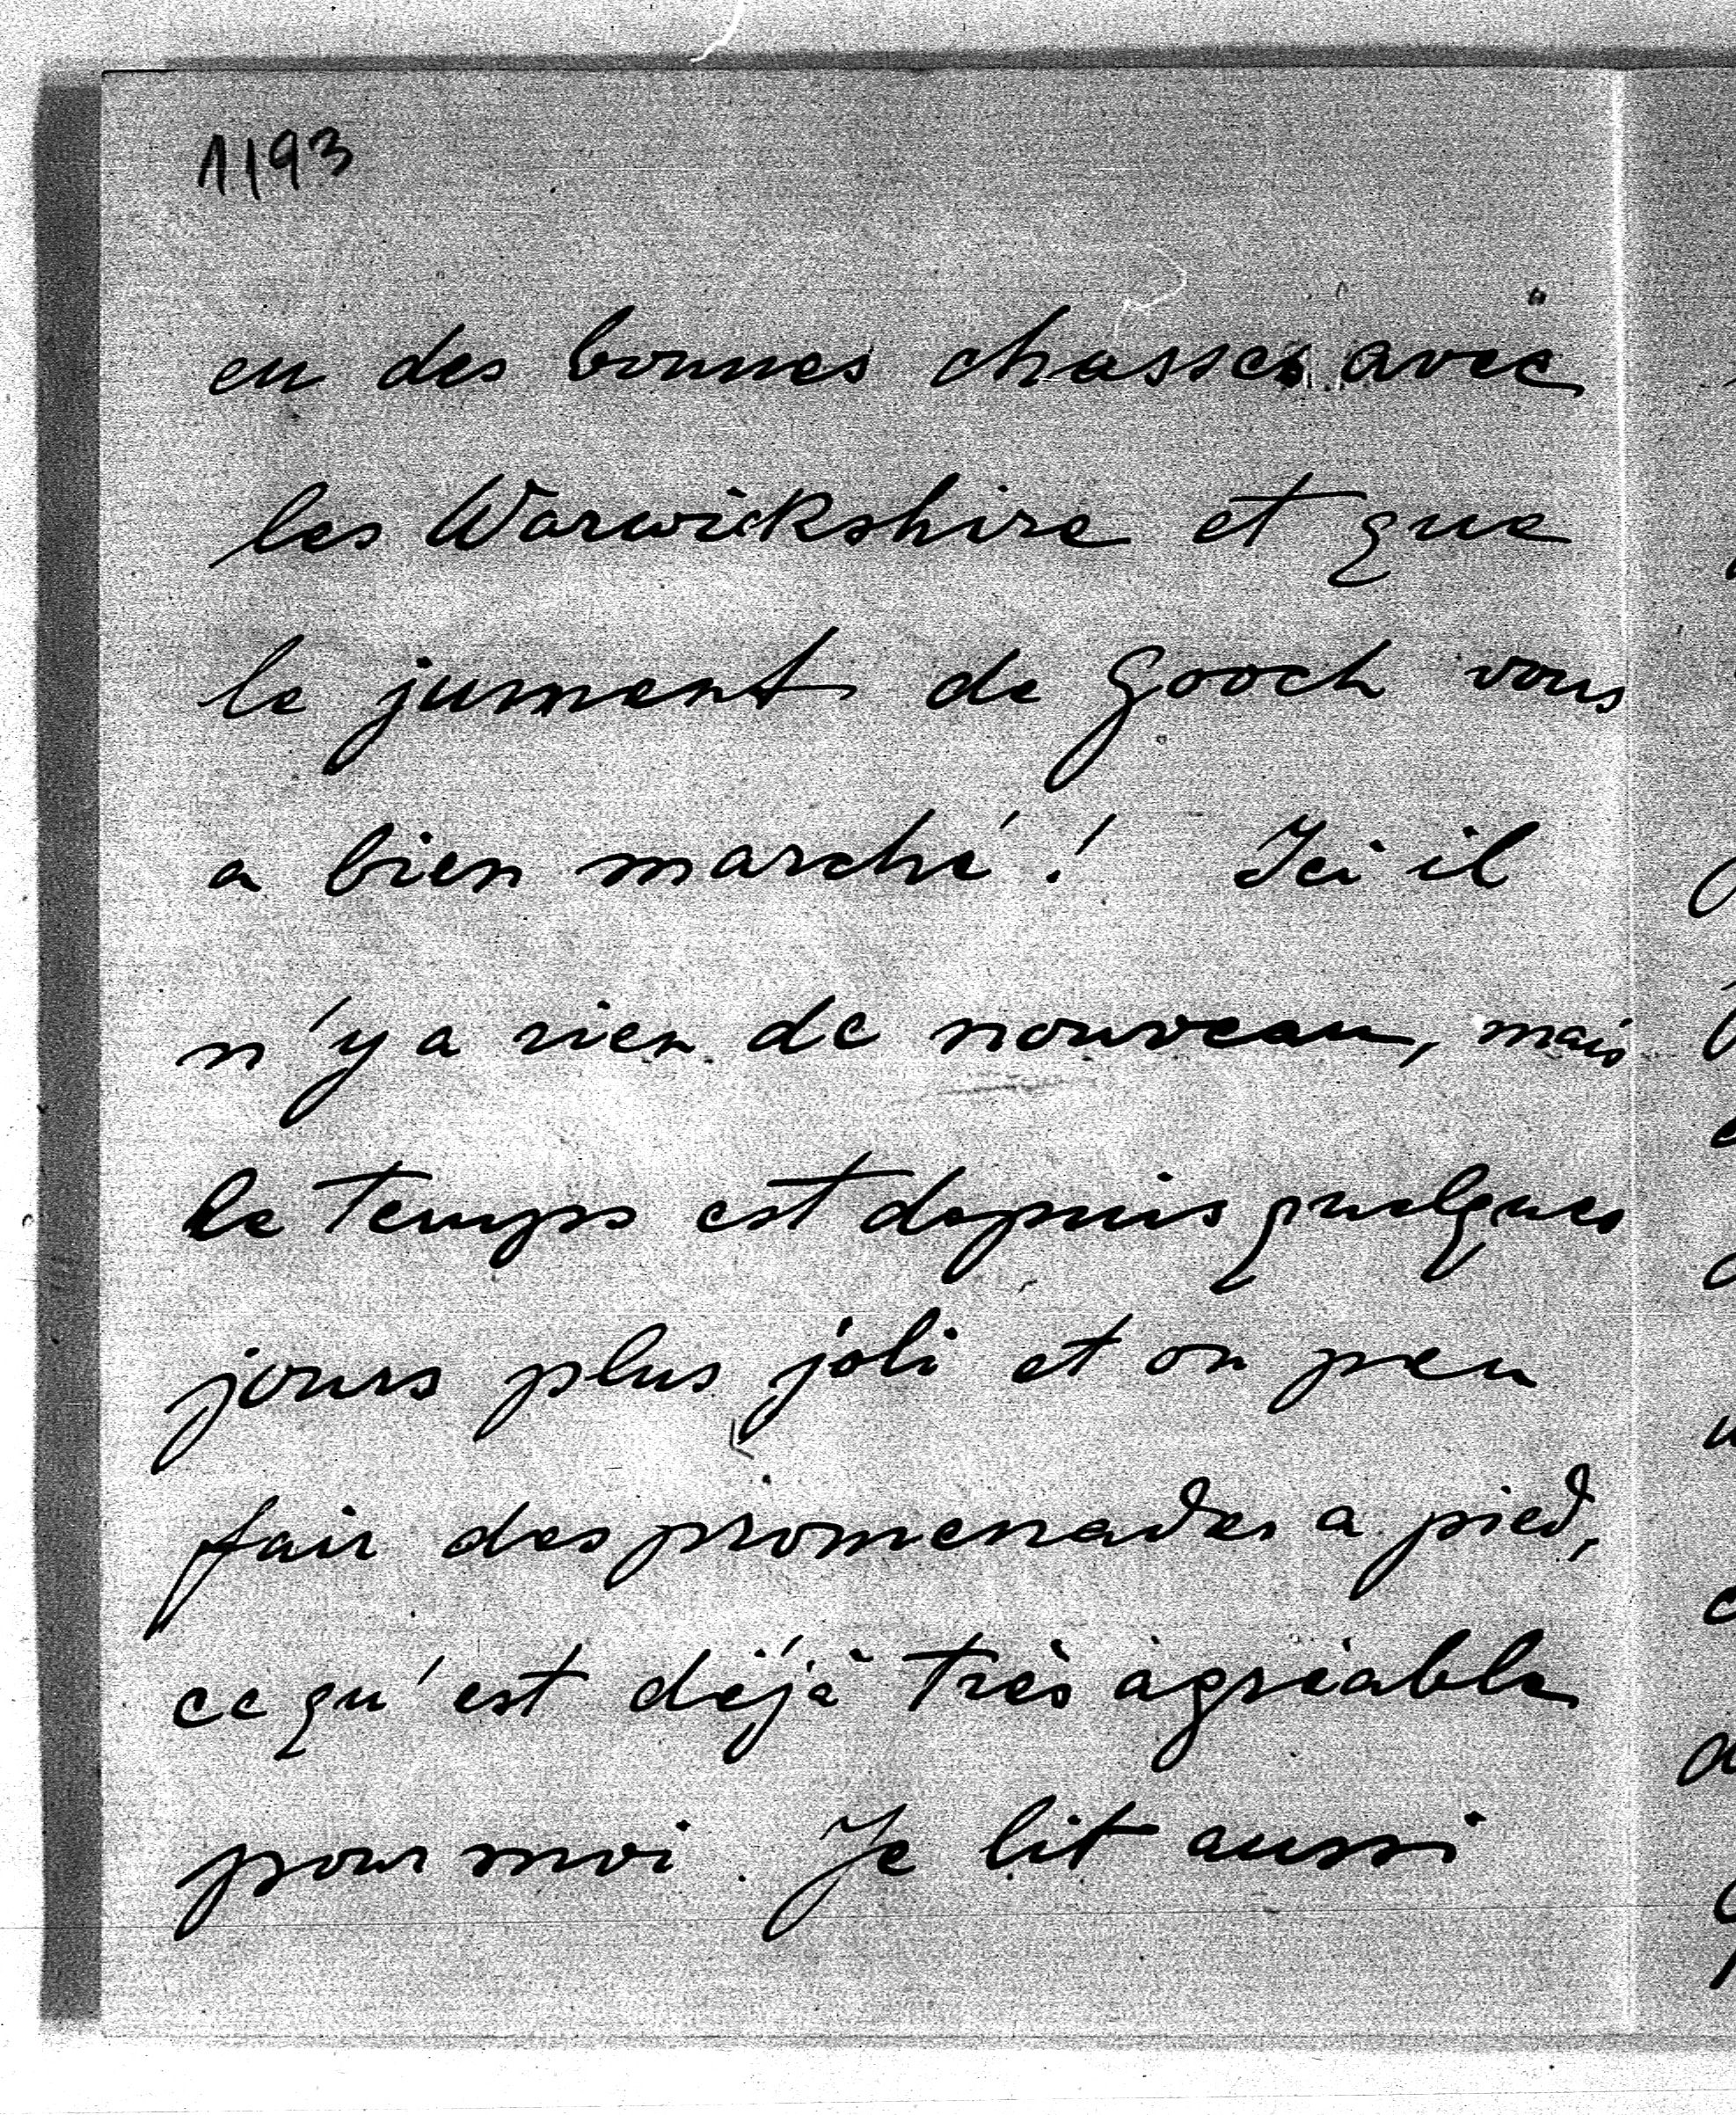 1193
eu des bonnes chasses avec
les Warwickshire et que
le jument de Gooch vous
a bien marché! Ici il
n'y a rien de nouveau, mais
le temps est depuis quelques
jours plus joli et on peu
fair des promenades a pied,
ce qu'est déjà très agréable
pour moi. Je lit aussi